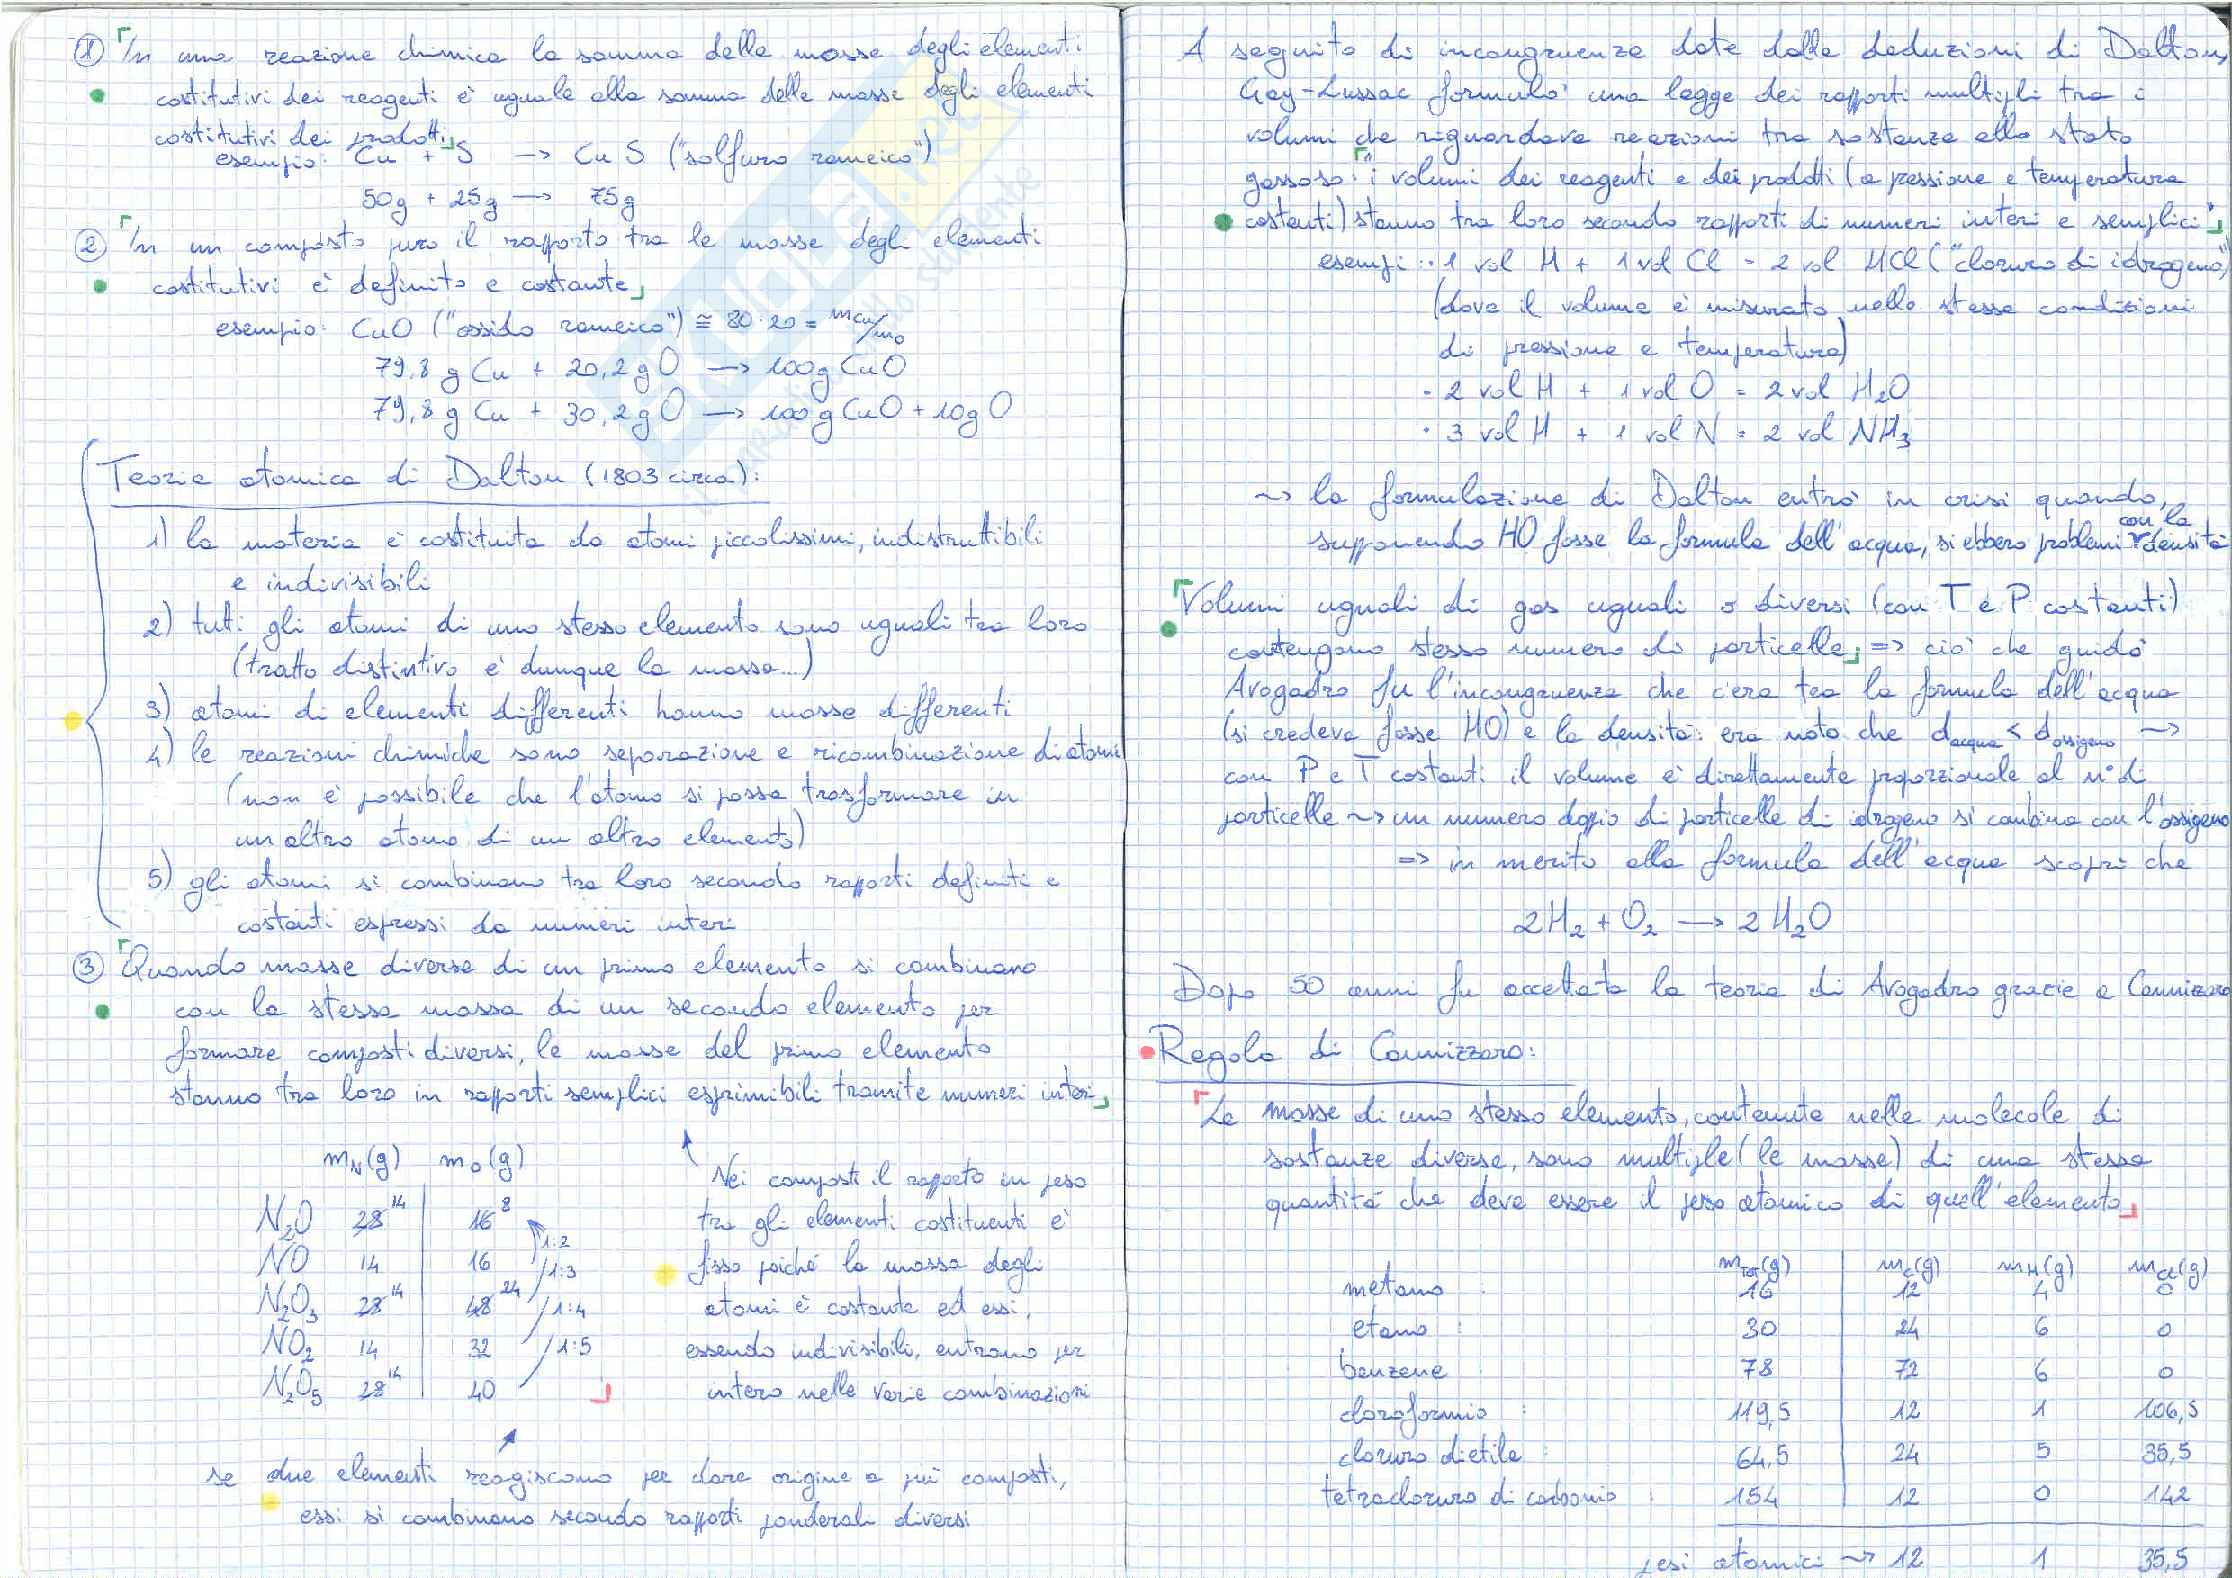 ① In una reazione chimica la somma delle masse degli elementi
costitutivi dei reagenti è uguale alla somma delle masse degli elementi
costitutivi dei prodotti
esempio: Cu + S → CuS ("solfuro rameico")
50g + 25g → 75g
② In un composto puro il rapporto tra le masse degli elementi
costitutivi è definito e costante
esempio: CuO ("ossido rameico") ≅ 80:20 = mCu/mO
79,8 g Cu + 20,2 g O → 100g CuO
79,8 g Cu + 30,2 g O → 100 g CuO + 10g O
Teoria atomica di Dalton (1803 circa):
1) la materia è costituita da atomi piccolissimi, indistruttibili
e indivisibili
2) tutti gli atomi di uno stesso elemento sono uguali tra loro
(tratto distintivo è dunque la massa...)
3) atomi di elementi differenti hanno masse differenti
4) le reazioni chimiche sono separazione e ricombinazione di atomi
(non è possibile che l'atomo si possa trasformare in
un altro atomo di un altro elemento)
5) gli atomi si combinano tra loro secondo rapporti definiti e
costanti espressi da numeri interi
③ Quando masse diverse di un primo elemento si combinano
con la stessa massa di un secondo elemento per
formare composti diversi, le masse del primo elemento
stanno tra loro in rapporti semplici esprimibili tramite numeri interi
mN(g) mO(g)
N₂O 28 14 16 8
1:2
NO 14 16
1:3
N₂O₃ 28 14 48 24
1:4
NO₂ 14 32
1:5
N₂O₅ 28 14 40
Nei composti il rapporto in peso
tra gli elementi costituenti è
fisso poiché la massa degli
atomi è costante ed essi,
essendo indivisibili, entrano per
intero nelle varie combinazioni
se due elementi reagiscono per dare origine a più composti,
essi si combinano secondo rapporti ponderali diversi
A seguito di incongruenze date dalle deduzioni di Dalton,
Gay-Lussac formulò una legge dei rapporti multipli tra i
volumi che riguardava reazioni tra sostanze allo stato
gassoso: "i volumi dei reagenti e dei prodotti (a pressione e temperatura
costanti) stanno tra loro secondo rapporti di numeri interi e semplici"
esempi: · 1 vol H + 1 vol Cl = 2 vol HCl ("cloruro di idrogeno")
(dove il volume è misurato nelle stesse condizioni
di pressione e temperatura)
· 2 vol H + 1 vol O = 2 vol H₂O
· 3 vol H + 1 vol N = 2 vol NH₃
~> la formulazione di Dalton entrò in crisi quando,
supponendo HO fosse la formula dell'acqua, si ebbero problemi con la densità
Volumi uguali di gas uguali o diversi (con T e P costanti)
contengono stesso numero di particelle => ciò che guidò
Avogadro fu l'incongruenza che c'era tra la formula dell'acqua
(si credeva fosse HO) e la densità: era noto che dacqua < dossigeno ~>
con P e T costanti il volume è direttamente proporzionale al n° di
particelle ~> un numero doppio di particelle di idrogeno si combina con l'ossigeno
=> in merito alla formula dell'acqua scoprì che
2H₂ + O₂ → 2H₂O
Dopo 50 anni fu accettata la teoria di Avogadro grazie a Cannizzaro
Regola di Cannizzaro:
Le masse di uno stesso elemento, contenute nelle molecole di
sostanze diverse, sono multiple (le masse) di una stessa
quantità che deve essere il peso atomico di quell'elemento
mTOT(g) mC(g) mH(g) mCl(g)
metano : 16 12 4 0
etano : 30 24 6 0
benzene 78 72 6 0
cloroformio : 119,5 12 1 106,5
cloruro di etile : 64,5 24 5 35,5
tetracloruro di carbonio : 154 12 0 142
pesi atomici ~> 12 1 35,5